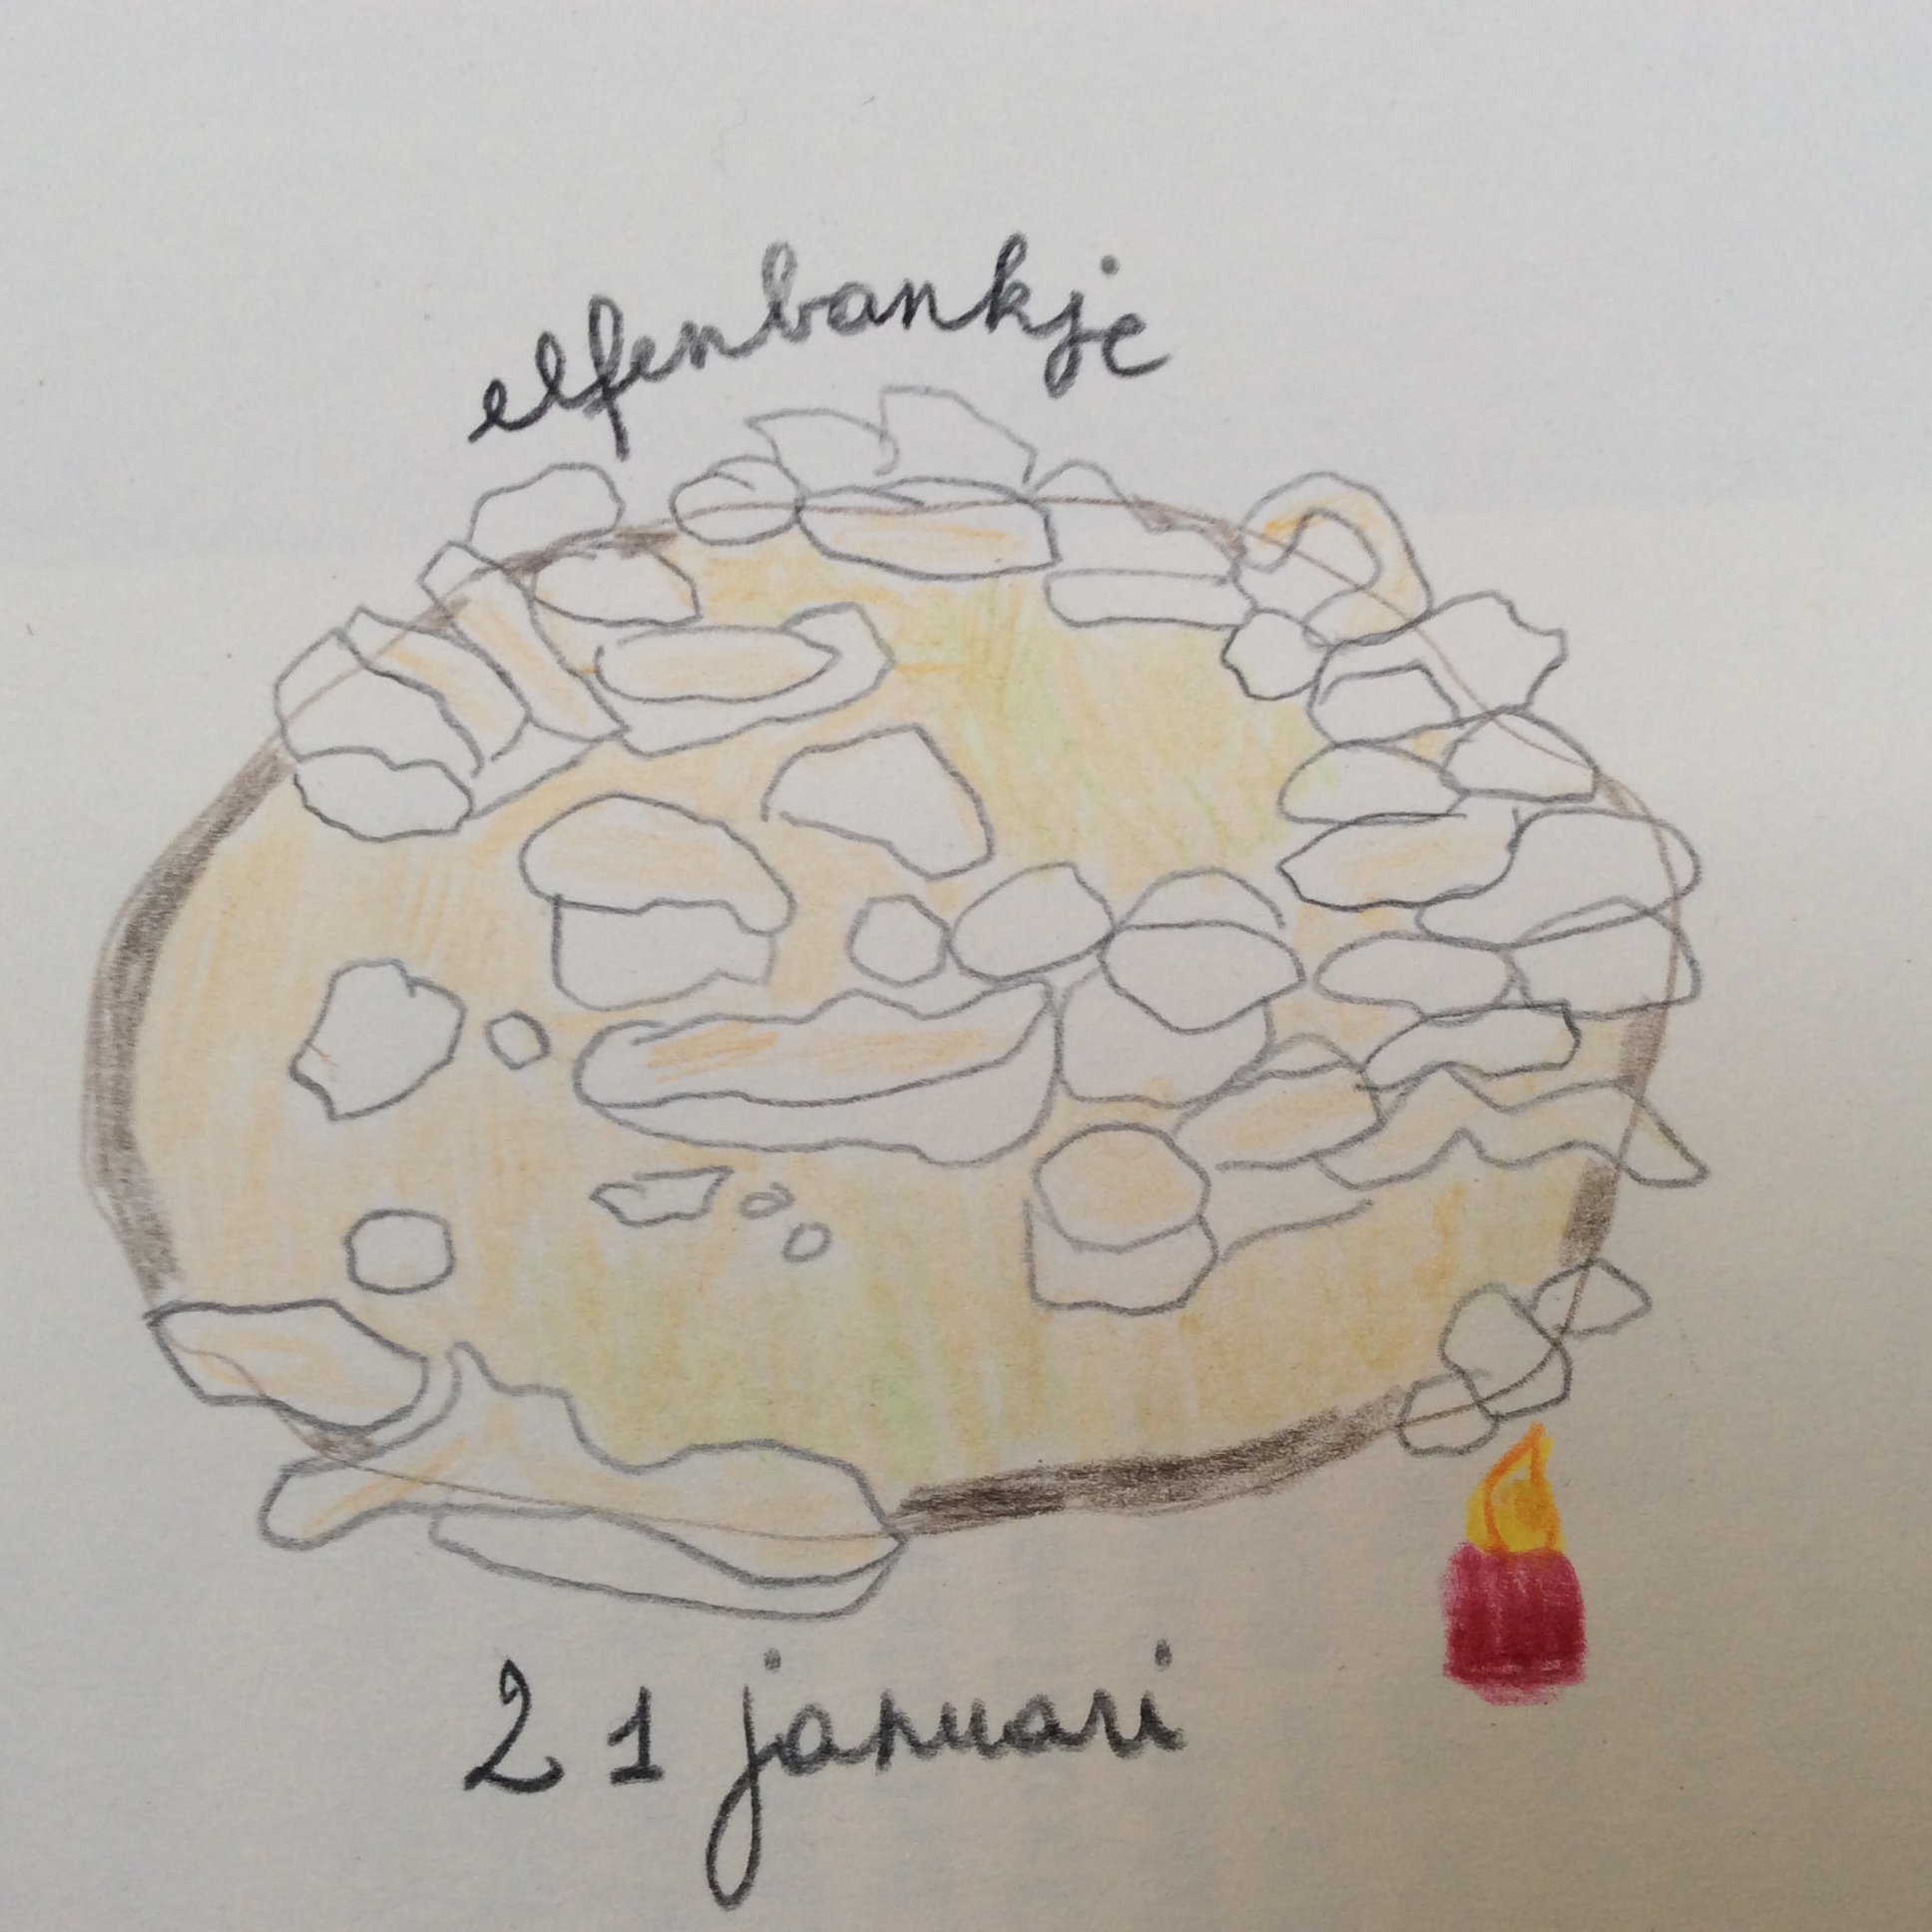 elfenbankje
21 januari